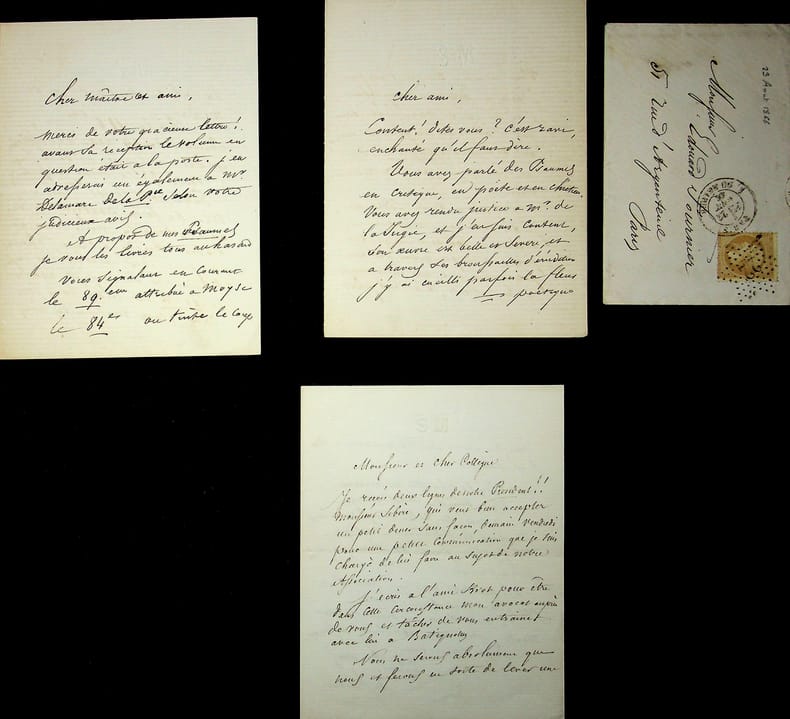 Cher maître et ami,
Merci de votre gracieuse lettre !
avant sa réception le volume en
question était à la poste. j'en
adresserai un également a Mr
Delamare de la Pne selon votre
judicieux avis.
A propos de mes Psaumes
je vous les livre tous au hasard
Vous signalant en courant
le 89.eme attribué a Moyse
le 84e ou
Cher ami,
Content ! dites vous ? c'est ravi,
enchanté qu'il faut dire.
Vous avez parlé des Psaumes
en critique, en poète et en chrétien
Vous avez rendu justice a Mr. de
la Jugie, et j'en suis content,
Son œuvre est belle et sévère, et
a travers ses broussailles d'érudition
j'y ai cueilli parfois la fleur
poétique
23 Aout 1868
Monsieur
Edouard Fournier
55 rue d'Argenteuil
Paris
Monsieur et cher Collègue
Je reçois deux lignes de notre Président !!
Monsieur , qui veut bien accepter
un petit diner sans façon, demain vendredi
pour une petite communication que je suis
chargé de lui faire au sujet de notre
Association.
J'écris a l'ami pour être
dans cette circonstance mon avocat auprès
de vous et tâcher de vous entrainer
avec lui a Batignolles
Nous ne serons absolument que
nous et ferons en sorte de lever une